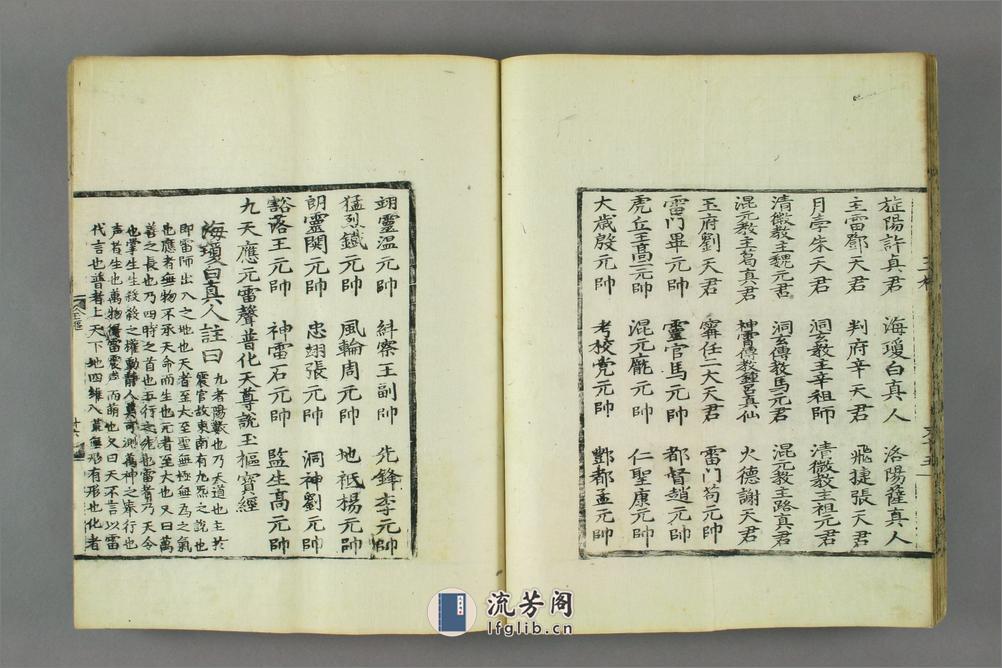 旌陽許真君 海瓊白真人 洛陽薩真人
主雷鄧天君 判府辛天君 飛捷張天君
月孛朱天君 洞玄教主辛祖師 清微教主祖元君
清微教主魏元君 洞玄傳教馬元君 混元教主路真君
混元教主葛真君 神霄傳教鍾呂真仙 火德謝天君
玉府劉天君 寗任二大天君 雷門苟元帥
雷門畢元帥 靈官馬元帥 都督趙元帥
虎丘王高二元帥 混元龐元帥 仁聖康元帥
大歲殷元帥 考校党元帥 酆都孟元帥
翊靈溫元帥 糾察王副帥 先鋒李元帥
猛烈鐵元帥 風輪周元帥 地祇楊元帥
朗靈関元帥 忠翊張元帥 洞神劉元帥
豁落王元帥 神雷石元帥 監生高元帥
九天應元雷聲普化天尊說玉樞寶經
海瓊白真人註曰
九者陽數也乃天道也主於
震宮故東南有九炁之說也
即雷師出入之地也天者至大至聖無極無為之氣
也應者無物不承天命而生也元者至大也又曰萬
善之長也乃四時之首也五行之先也雷者乃天令
也掌生生殺殺之權動靜人莫可測萬神之奉行也
声者生也萬物得雷震声而萌也又曰天不言以雷
代言也普者上天下地四維八荒無形有形也化者
流芳阁
lfglib.cn